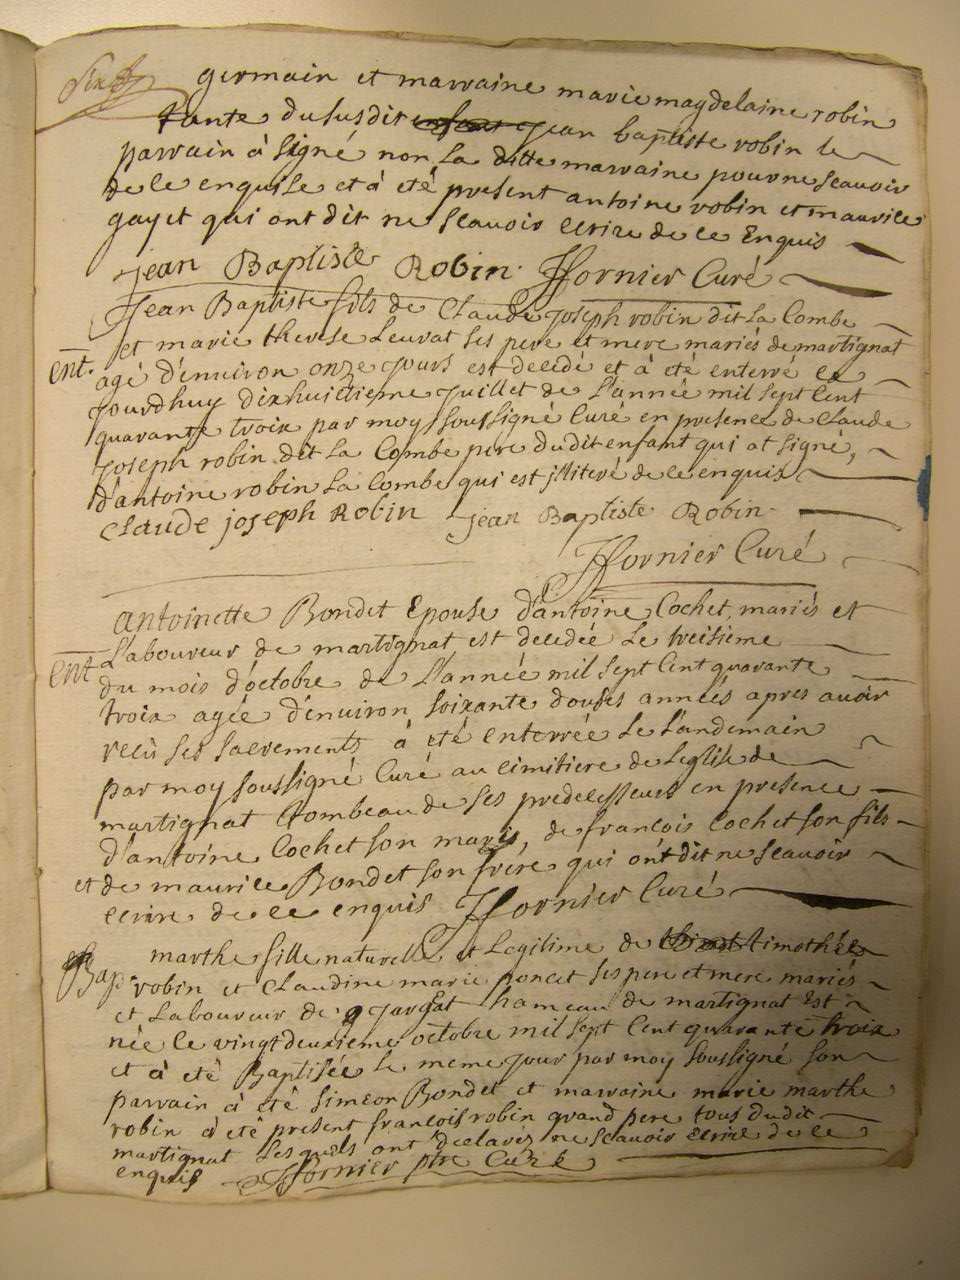 germain et marraine marie magdelaine robin
tante dususdit enfant Jean baptiste robin le
parrain à signé non la ditte marraine pour ne scavoir
de ce enquise et à eté present antoine robin et maurice
gayet qui ont dit ne scavoir ecrire de ce Enquis
Jean Baptiste Robin. Fornier Curé
Jean Baptiste fils de Claude Joseph robin dit La Combe
et marie therese Leurat ses pere et mere mariés de martignat
ent.
agé d'enuiron onze jours est decedé et à eté enterré ce
jourdhuy dixhuictieme Juillet de L'année mil sept Cent
quarante troix par moy soussigné Curé en presence de Claude
Joseph robin dit La Combe pere dudit enfant qui at signé,
d'antoine robin La Combe qui est jlliteré de ce enquix
Claude joseph Robin Jean Baptiste Robin.
Fornier Curé
antoinette Bondet Epouse d'antoine Cochet, mariés et
L'aboureur de martignat est decedée Le treisieme
ent
du mois d'octobre de L'année mil sept Cent quarante
troix agée d'enuiron soixante douses années apres auoir
recù ses sacrements à eté enterrée Le Landemain
par moy soussigné Curé au cimitiere de Leglise de
martignat tombeau de ses predecesseurs en presence
d'antoine Cochet son marys, de francois Cochet son fils
et de maurice Bondet son frère qui ont dit ne scauoir
ecrire de ce enquis Fornier Curé
marthe fille naturelle et Legitime de timothée
Bap.
robin et Claudine marie poncet ses pere et mere mariés
et Laboureur de Giargat hameau de martignat Est
née Le vingt deuxieme octobre mil sept Cent quarante troix
et à eté Baptisée Le meme jour par moy soussigné son
parrain à eté simeon Bondet et marraine marie marthe
robin à eté present francois robin grand pere tous dudit
martignat Lesquels ont declarés ne scauoir Ecrire de ce
enquis Fornier ptre Curé